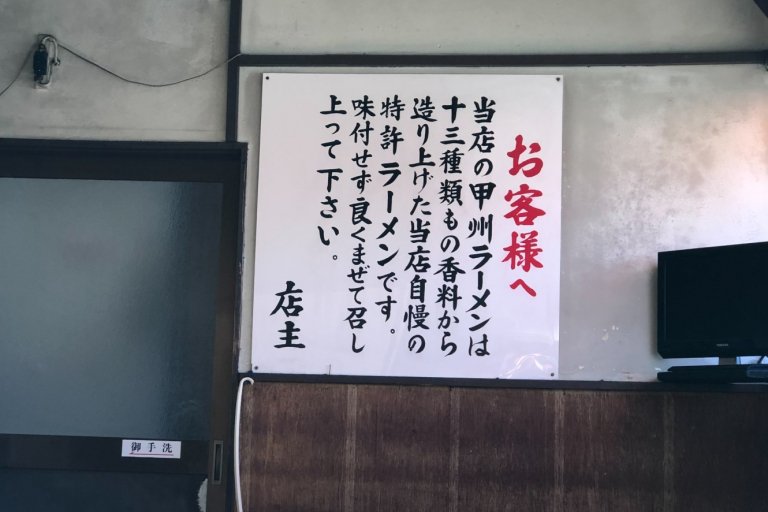 お客様へ
当店の甲州ラーメンは
十三種類もの香料から
造り上げた当店自慢の
特許ラーメンです。
味付せず良くまぜて召し
上って下さい。
店主
御手洗